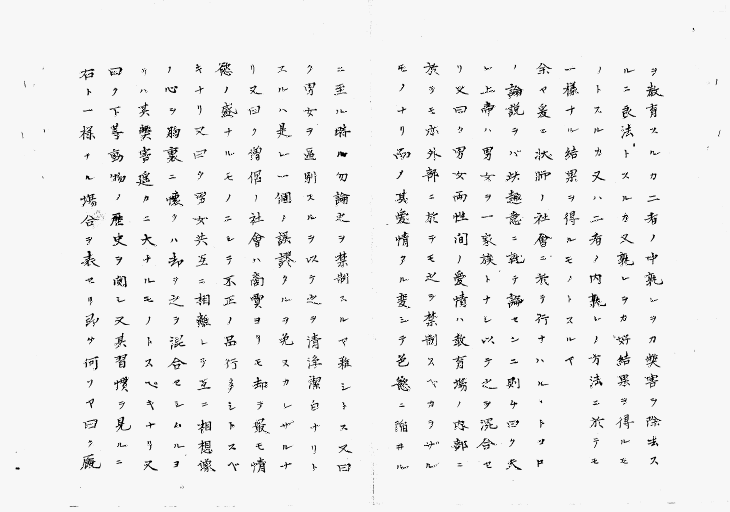 ヲ教育スルカ二者ノ中孰レヲカ弊害ヲ除去ス
ルニ良法トスルカ又孰レヲカ好結果ヲ得ルモ
ノトスルカ又ハ二者ノ内孰レノ方法ニ於テモ
一様ナル結果ヲ得ルモノトスルヤ
余ヤ爰ニ状師ノ社會ニ於テ行ナハルヽトコロ
ノ論説ヲバ其趣意ニ就テ論センニ則チ曰ク天
レ上帝ハ男女ヲ一家族トナシ以テ之ヲ混合セ
リ又曰ク男女両性間ノ愛情ハ教育場ノ内部ニ
於テモ亦外部ニ於テモ之ヲ禁制スベカラザル
モノナリ而メ其愛情タル変シテ色慾ニ陥ヰル
ニ至ル時ハ勿論之ヲ禁制スルヤ難シトス又曰
ク男女ヲ區別スルヲ以テ之ヲ清浄潔白ナリト
スルハ是レ一個ノ誤謬タルヲ免スカレザルナ
リ又曰ク僧侶ノ社會ハ商賣ヨリモ却テ最モ情
慾ノ盛ナルモノニシテ不正ノ品行多シトスベ
キナリ又曰ク男女共互ニ相離レテ互ニ相想像
ノ心ヲ胸裏ニ懐クハ却ヲ之ヲ混合セシムルヨ
リハ其弊害遙カニ大ナルモノトスベキナリ又
曰ク下等動物ノ歴史ヲ閲シ又其習慣ヲ見ルニ
右ト一様ナル場合ヲ表セリ即チ何ソヤ曰ク厩